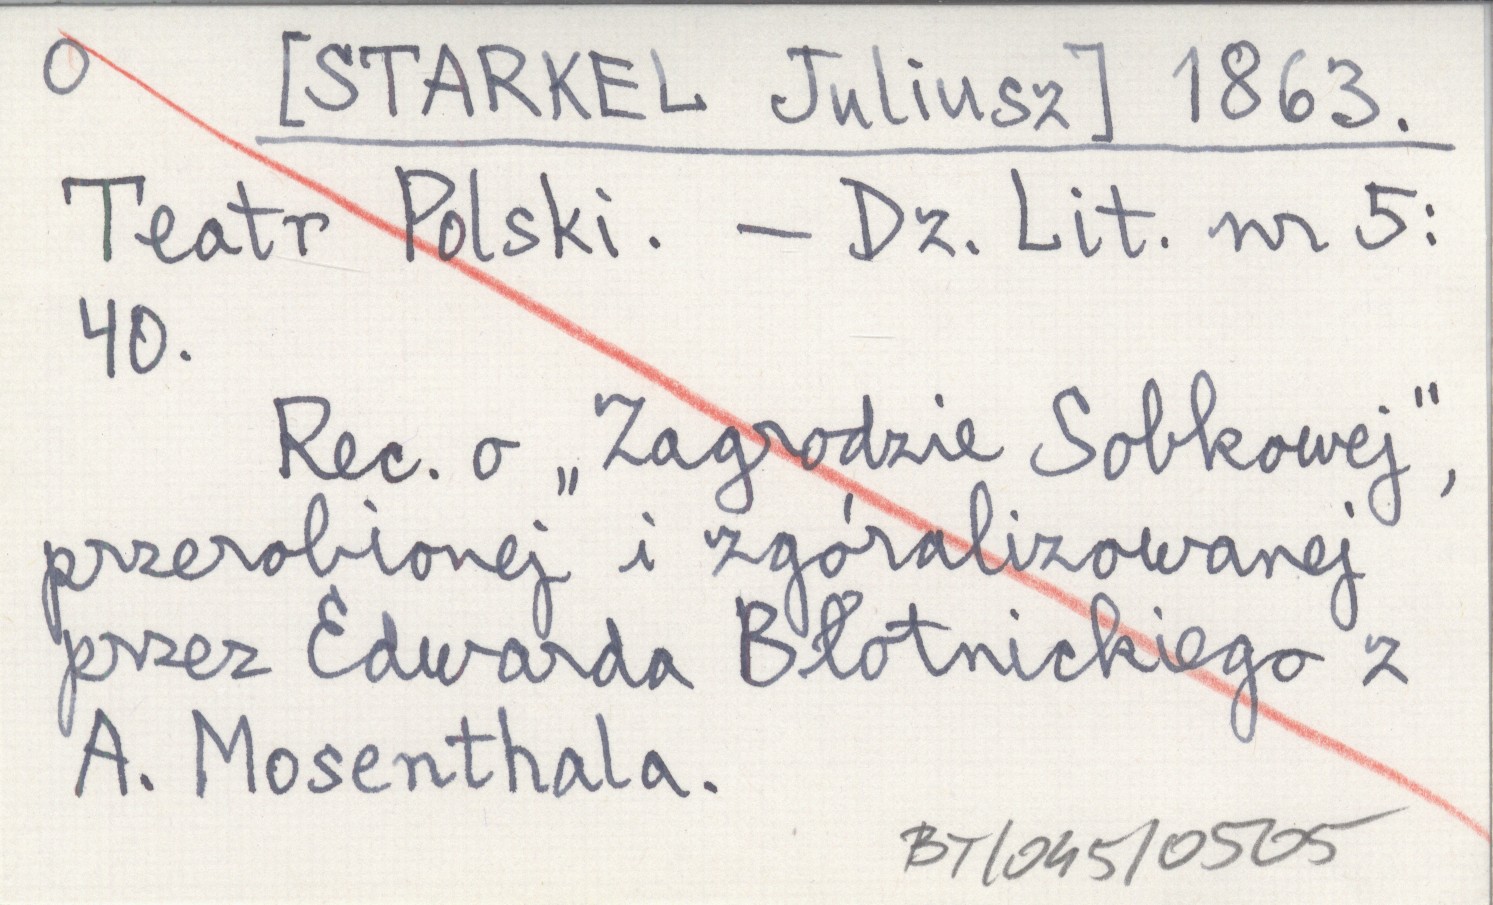 O [STARKEL Juliusz] 1863.
Teatr Polski. — Dz. Lit. nr 5:
40.
Rec. o „Zagrodzie Sobkowej",
przerobionej i zgóralizowanej
przez Edwarda Błotnickiego z
A. Mosenthala.
BT/045/0505